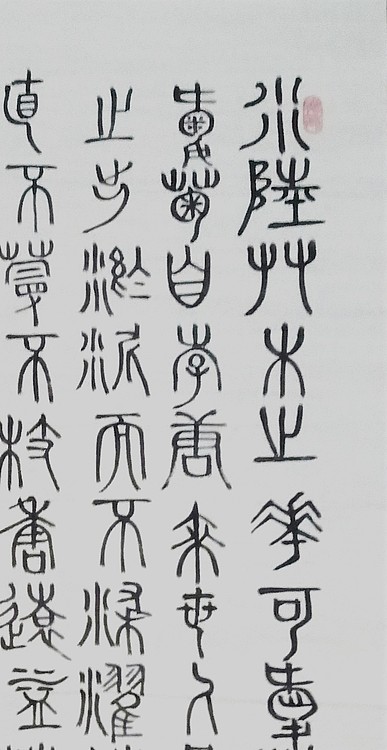 水陸艸木之華可愛
愛菊自李唐來世人
之出淤泥而不染濯
直不蔓不枝香遠益